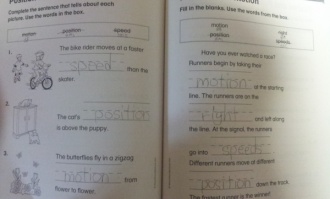 Complete the sentence that tells about each
picture. Use the words in the box.
motion position speed
1.
The bike rider moves at a faster
speed than the
skater.
2.
The cat's position
is above the puppy.
3.
The butterflies fly in a zigzag
motion from
flower to flower.
Fill in the blanks. Use the words from the box.
motion
position right
speeds
Have you ever watched a race?
Runners begin by taking their
motion at the starting
line. The runners are on the
right and left along
the line. At the signal, the runners
go into speeds
Different runners move at different
position down the track.
The fastest runner is the winner!